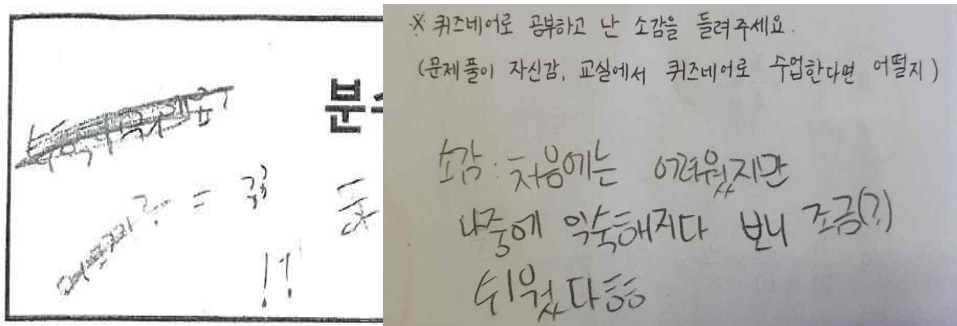 분수
= ??
!?
※ 퀴즈네어로 공부하고 난 소감을 들려주세요.
(문제풀이 자신감, 교실에서 퀴즈네어로 수업한다면 어떨지)
소감 : 처음에는 어려웠지만
나중에 익숙해지다 보니 조금(?)
쉬웠다ㅎㅎ